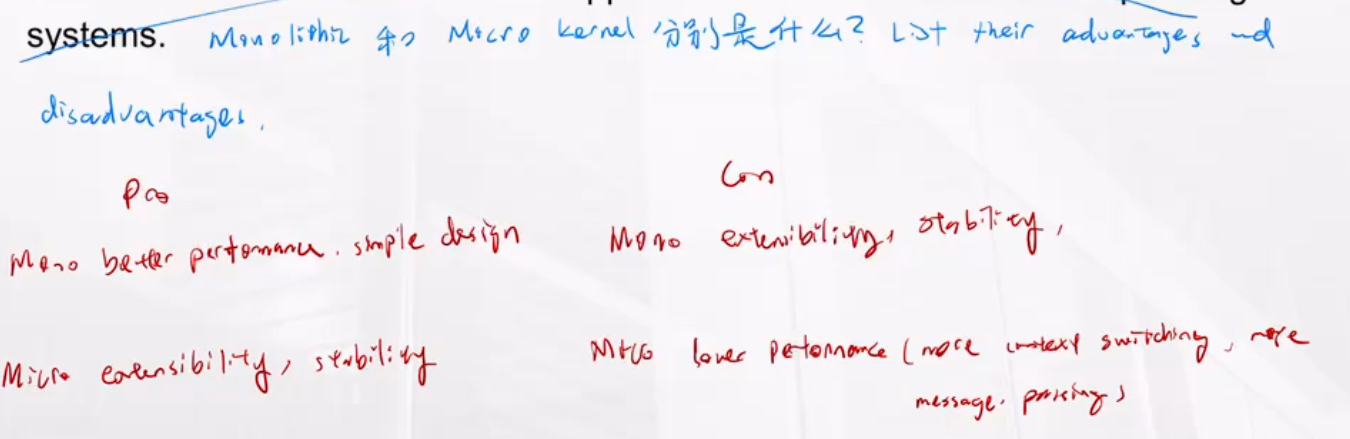 systems. Monolithic 和 Micro kernel 分别是什么? List their advantages and
disadvantages.
Pros
Cons
Mono better performance. simple design
Mono extensibility, stability,
Micro extensibility, stability
Micro lower performance (more context switching, more
message. passing)